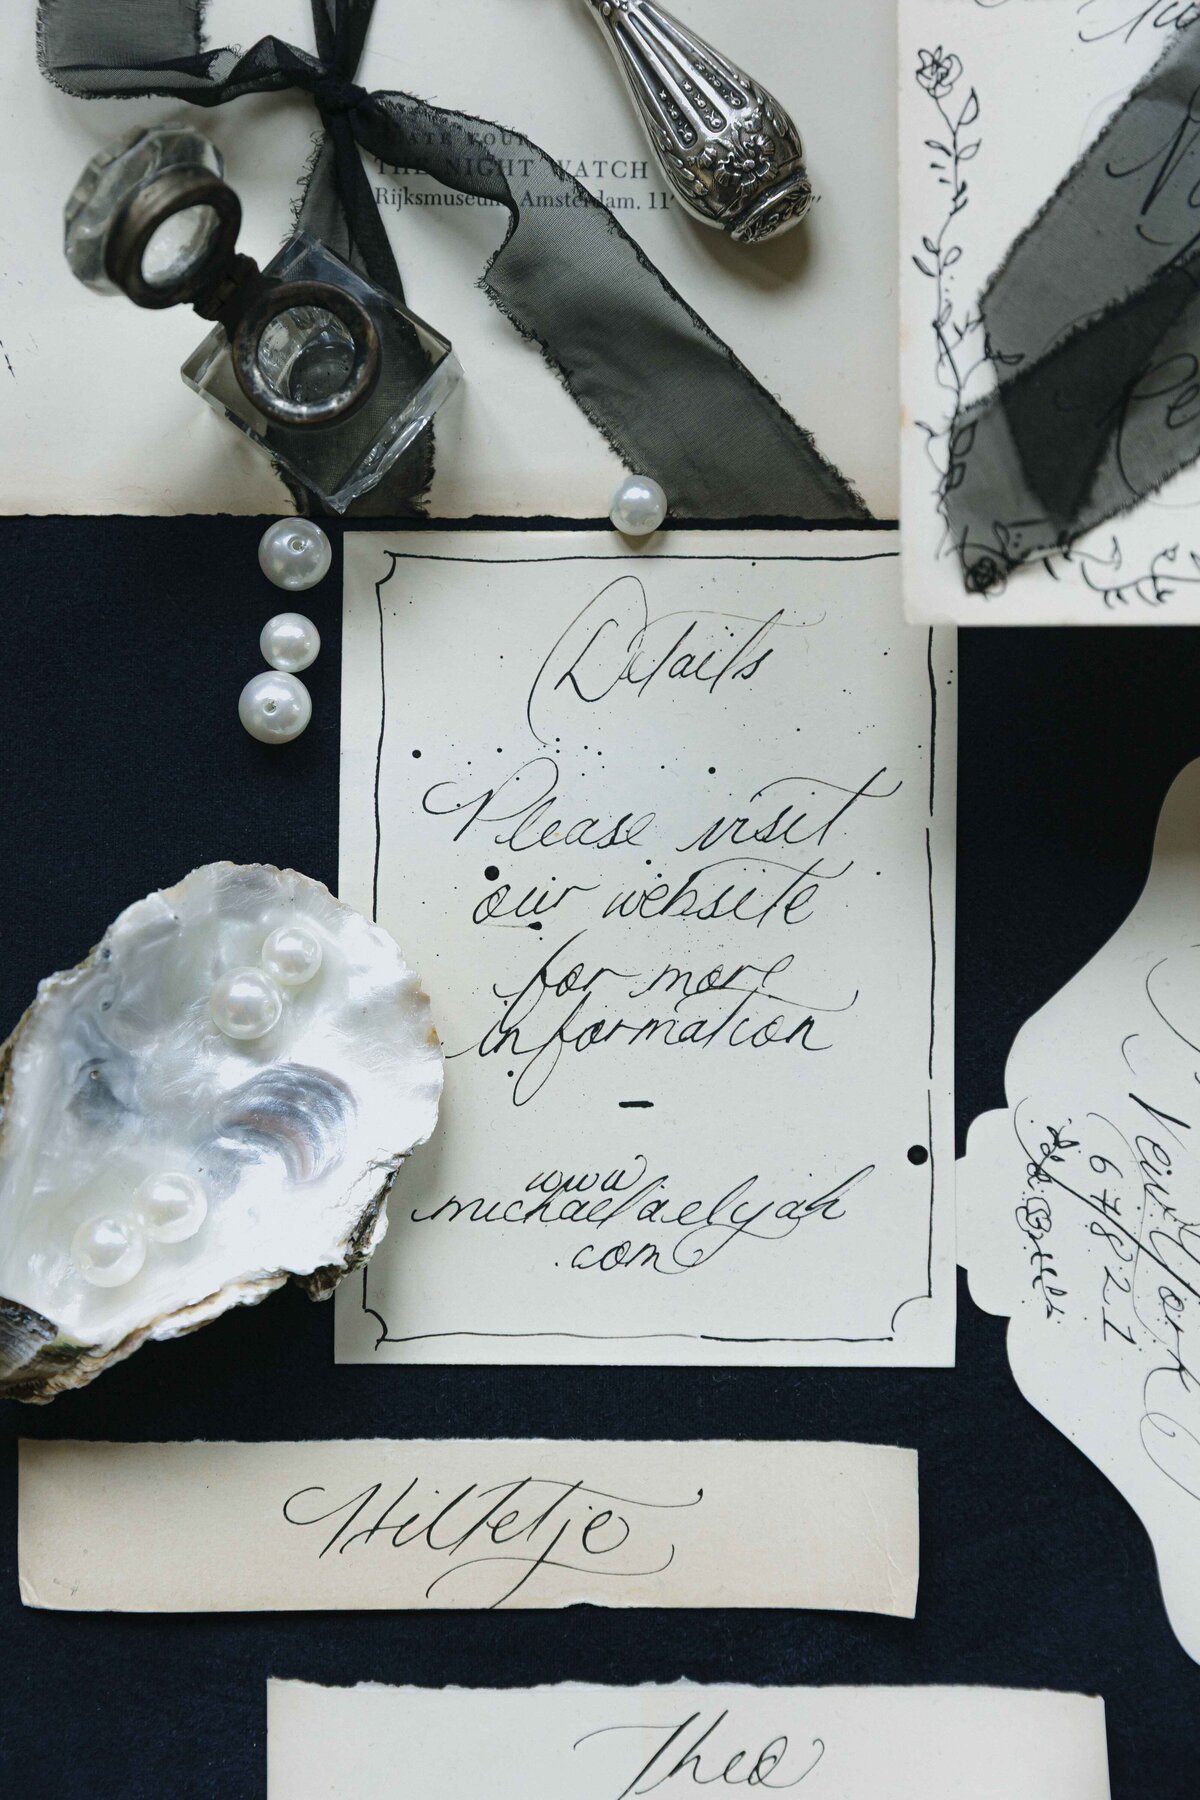 THE NIGHT WATCH
Rijksmuseum Amsterdam. 11
Details
Please visit
our website
for more
information
www
michaelaelyah
.com
New York
67821
Hiltetje
Theo